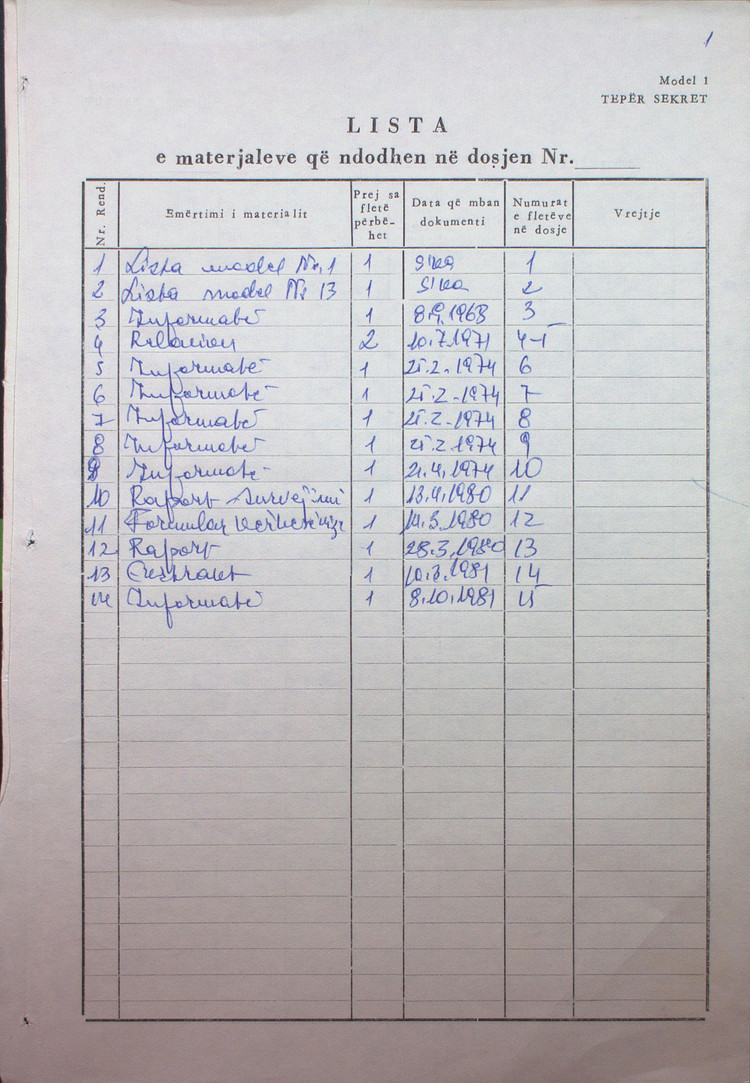 1
Model 1
TEPËR SEKRET
LISTA
e materjaleve që ndodhen në dosjen Nr.
Nr. Rend. Emërtimi i materialit Prej sa fletë përbë-het Data që mban dokumenti Numurat e fletëve në dosje Vrejtje
1 Lista model Nr. 1 1 1
2 Lista model Nr 13 1 2
3 Informatë 1 8.9.1968 3
4 Relacion 2 10.7.1971 4-5
5 Informatë 1 25.2.1974 6
6 Informatë 1 25.2.1974 7
7 Informatë 1 25.2.1974 8
8 Informatë 1 25.2.1974 9
9 Informatë 1 21.4.1974 10
10 Raport survejimi 1 13.4.1980 11
11 Formular 1 14.3.1980 12
12 Raport 1 28.3.1980 13
13 1 10.3.1981 14
14 Informatë 1 8.10.1981 15